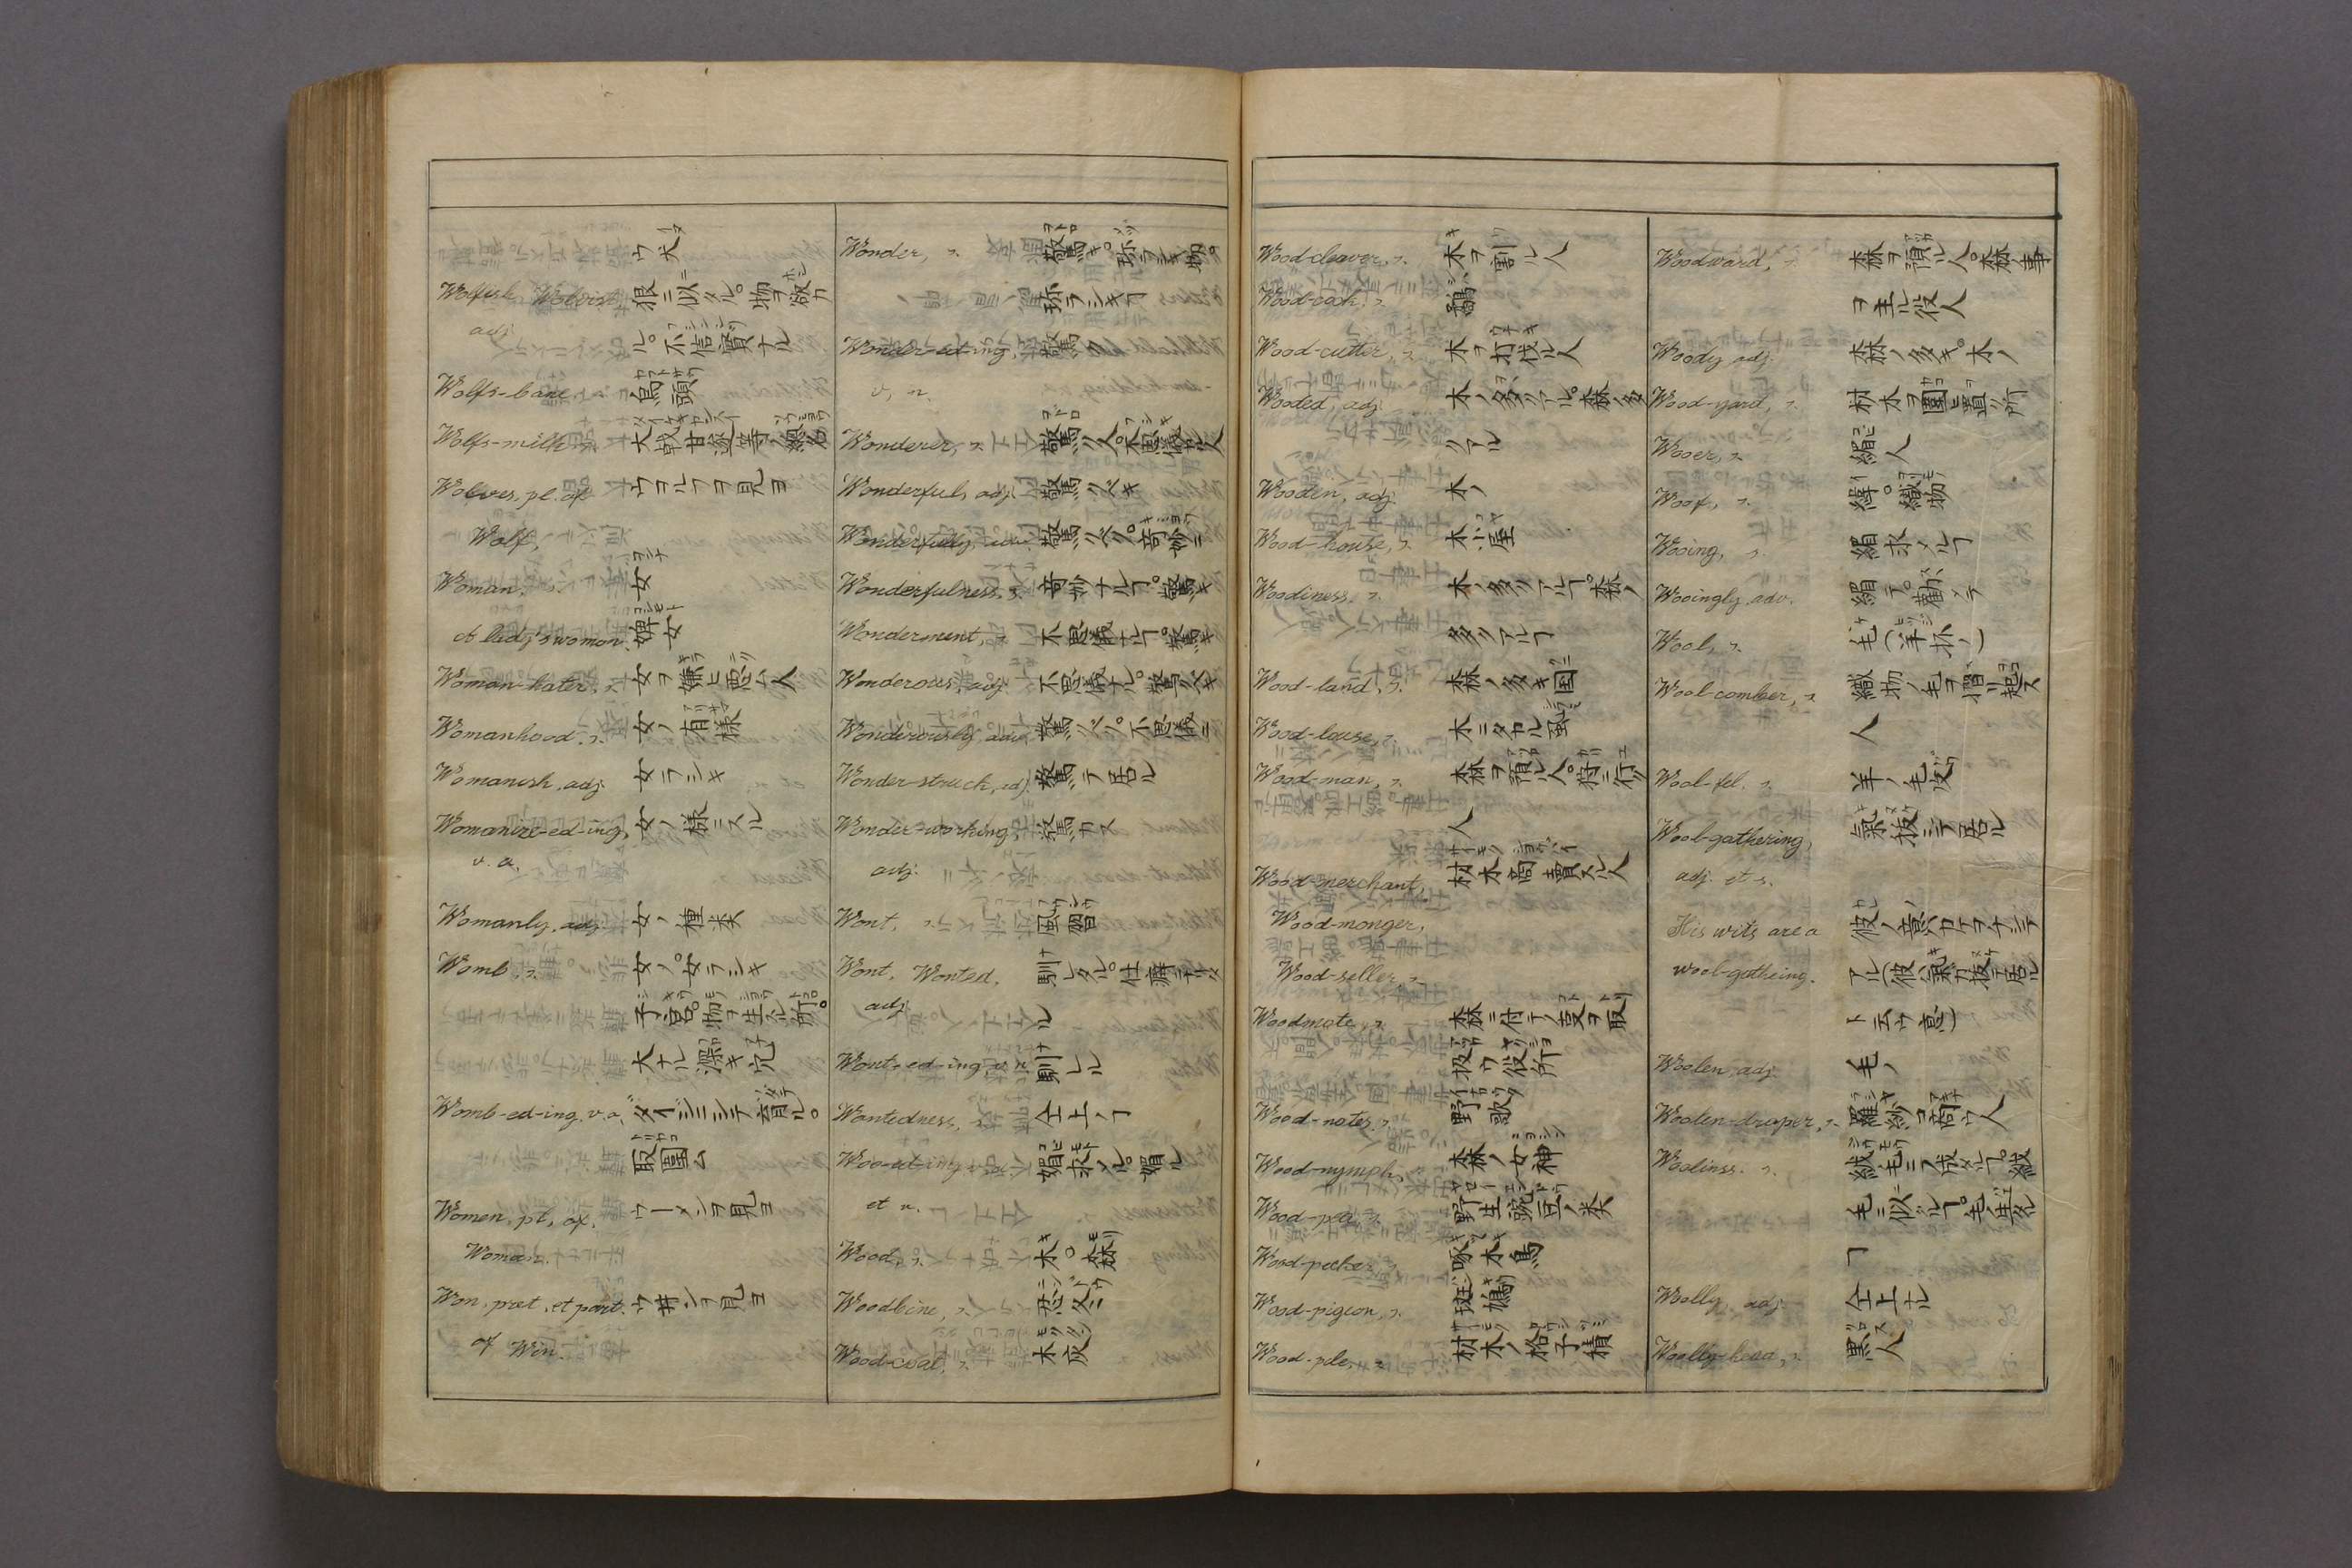 ウ犬
Wolfish, Wolvish 狼ニ似タル。物ヲ
adj. ル。不信實ナル
Wolfs-bane 烏頭
Wolfs-milk 大戟甘遂等ノ總名
Wolves, pl. of ウヲルフヲ見ヨ
Wolf,
Woman, s. 女
A lady's woman. 婢女
Woman-hater, s. 女ヲ嫌ヒ悪ム人
Womanhood, s. 女ノ有様
Womanish, adj. 女ラシキ
Womanize-ed-ing, 女ノ様ニスル
v. a.
Womanly, adj. 女ノ種类
Womb, s. 女ノ。女ラシキ
子宮。物ヲ生スル所。
大ナル深キ穴
Womb-ed-ing, v. a. 育ル。
取圍ム
Women, pl. of. ウーメンヲ見ヨ
Woman.
Won, præt. et part. ウ井ンヲ見ヨ
of Win.
Wonder, s. 驚キ。珎ラシキ物。
珎ラシキヿ
Wonder-ed-ing, 驚ク
v. n.
Wonderer, s. 驚ク人。不思儀ガル人
Wonderful, adj. 驚クベキ
Wonderfully, adv. 驚クベク。奇妙ニ
Wonderfulness, s. 奇妙ナルヿ。驚キ
Wonderment, s. 不思儀ナルヿ。驚キ
Wonderous, adj. 不思儀ナル。驚クベキ
Wonderously, adv. 驚クベク。不思儀ニ
Wonder-struck, adj. 驚テ居ル
Wonder-working, 驚カス
adj.
Wont, s. 風習
Wont, Wonted, 馴レタル。仕癖
adj. ル
Wont-ed-ing, v. n. 馴レル
Wontedness, 仝上ノヿ
Woo-ed-ing, 媚求メル。媚ル
et n.
Wood, s. 木。森
Woodbine, s. 忍冬
Wood-coal, s. 木灰
Wood-cleaver, s. 木ヲ割ル人
Wood-cock, s. 鷸
Wood-cutter, s. 木ヲ打伐ル人
Wooded, adj. 木ノ多クアル。森ノ多
クアル
Wooden, adj. 木ノ
Wood-house, s. 木小屋
Woodiness, s. 木ノ多クアルヿ。森ノ
多クアルヿ
Wood-land, s. 森ノ多キ国
Wood-louse, s. 木ニタカル虱
Wood-man, s. 森ヲ預ル人。狩ニ行ク
人
Wood-merchant, 材木商賣スル人
Wood-monger,
Wood-seller, s.
Woodmote, s. 森ニ付テノ变ヲ取
扱ウ役所
Wood-notes, s. 野歌
Wood-nymph, s. 森ノ女神
Wood-pea, s. 野生豌豆ノ类
Wood-pecker, s. 啄木鳥
Wood-pigeon, s. 斑鳩
Wood-pile, s. 材木ノ格子積
Woodward, s. 森ヲ預ル人。森ノ事
ヲ主ル役人
Woody, adj. 森ノ多キ。木ノ
Wood-yard, s. 材木ヲ圍ヒ置ク所
Wooer, s. 媚人
Woof, s. 緯。織物
Wooing, s. 媚求メルヿ
Wooingly, adv. 媚テ。勸メテ
Wool, s. 毛(羊抔ノ)
Wool-comber, s. 織物ノ毛ヲ摺リ起ス
人
Wool-fel, s. 羊ノ毛皮
Wool-gathering, 氣抜シテ居ル
adj. et s.
His wits are a 彼ノ意ハカケヲナシテ
wool-gatheing. アル(彼ハ氣カ抜テ居ル
ト云ウ意)
Woolen, adj. 毛ノ
Woolen-draper, s. 羅紗ヲ商ウ人
Woolinss, s. 絨毛ニテ成タルヿ。絨
毛ニ似タルヿ。毛ノ生タル
ヿ
Woolly, adj. 仝上ナル
Woolly-head, s. 黒人